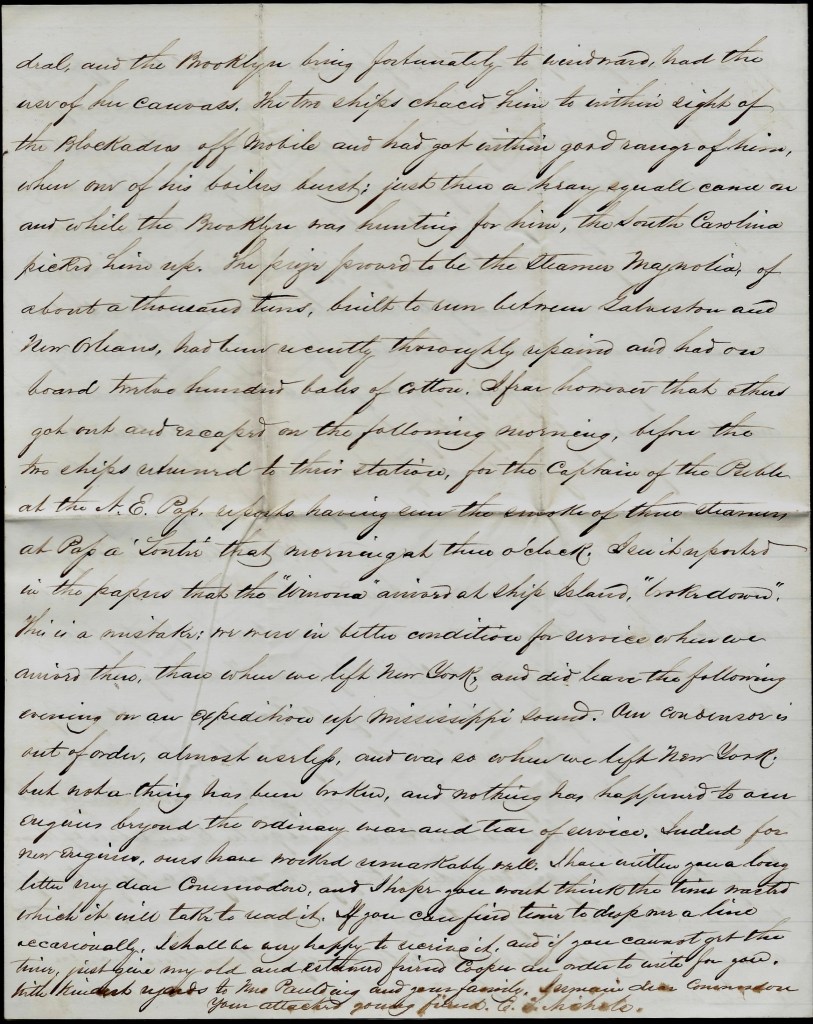 dral, and the Brooklyn being fortunately to windward, had the
use of her canvass. The two ships chaced him to within sight of
the Blockaders off Mobile and had got within good range of him,
when one of his boilers burst; just then a heavy squall came on
and while the Brooklyn was hunting for him, the South Carolina
picked him up. The prize proved to be the Steamer Magnolia, of
about a thousand tuns, built to run between Galveston and
New Orleans, had been recently thoroughly repaired and had on
board twelve hundred bales of cotton. I fear however that others
got out and escaped on the following morning, before the
two ships returned to their station, for the Captain of the Preble
at the N. E. Pass, reports having seen the smoke of three steamers
at Pass a' Loutre that morning at three o'clock. I see it reported
in the papers that the "Winona" arrived at Ship Island, "broke down".
This is a mistake: we were in better condition for service when we
arrived there, than when we left New York, and did leave the following
evening on an expedition up Mississippi Sound. Our condensor is
out of order, almost useless, and was so when we left New York.
but not a thing has been broken, and nothing has happened to our
engines beyond the ordinary wear and tear of service. Indeed for
new engines, ours have worked remarkably well. I have written you a long
letter my dear Commodore, and I hope you wont think the time wasted
which it will take to read it. If you can find time to drop me a line
occasionally, I shall be very happy to receive it, and if you cannot get the
time, just give my old and esteemed friend Cooper an order to write for you.
With kindest regards to Mrs Paulding and your family, I remain dear Commodore
Your attached young friend. E. T. Nichols.